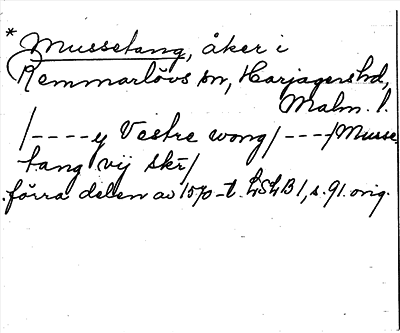 * Mussetang, åker i
Remmarlövs sn, Harjagers hd,
Malm. l.
/----y Vestre wong/---/Musse
tang vij skr/
förra delen av 1570-t. LSLB 1, s. 91. orig.